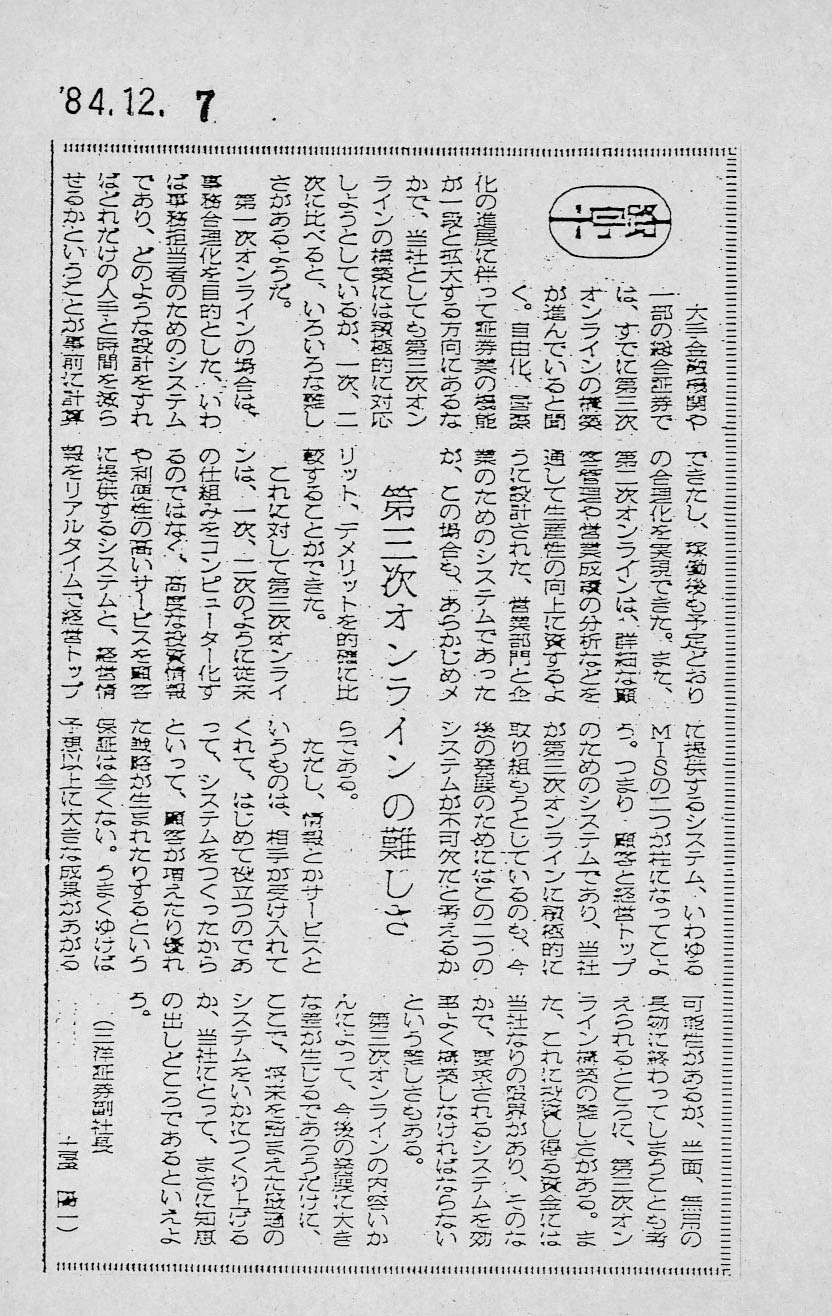 '84.12. 7
大手金融機関や
一部の総合証券で
は、すでに第三次
オンラインの構築
が進んでいると聞
く。自由化、国際
化の進展に伴って証券業の機能
が一段と拡大する方向にあるな
かで、当社としても第三次オン
ラインの構築には積極的に対応
しようとしているが、一次、二
次に比べると、いろいろな難し
さがあるようだ。
第一次オンラインの場合は、
事務合理化を目的とした、いわ
ば事務担当者のためのシステム
であり、どのような設計をすれ
ばどれだけの人手と時間を減ら
せるかということが事前に計算
できたし、稼働後も予定どおり
の合理化を実現できた。また、
第二次オンラインは、詳細な顧
客管理や営業成績の分析などを
通して生産性の向上に資するよ
うに設計された、営業部門と企
業のためのシステムであった
が、この場合も、あらかじめメ
リット、デメリットを的確に比
較することができた。
これに対して第三次オンライ
ンは、一次、二次のように従来
の仕組みをコンピューター化す
るのではなく、高度な投資情報
や利便性の高いサービスを顧客
に提供するシステムと、経営情
報をリアルタイムで経営トップ
第三次オンラインの難しさ
に提供するシステム、いわゆる
MISの二つが柱になってこよ
う。つまり、顧客と経営トップ
のためのシステムであり、当社
が第三次オンラインに積極的に
取り組もうとしているのも、今
後の発展のためにはこの二つの
システムが不可欠だと考えるか
らである。
ただし、情報とかサービスと
いうものは、相手が受け入れて
くれて、はじめて役立つのであ
って、システムをつくったから
といって、顧客が増えたり優れ
た戦略が生まれたりするという
保証は全くない。うまくゆけば
予想以上に大きな成果があがる
可能性があるが、当面、無用の
長物に終わってしまうことも考
えられるところに、第三次オン
ライン構築の難しさがある。ま
た、これに投資し得る資金には
当社なりの限界があり、そのな
かで、要求されるシステムを効
率よく構築しなければならない
という難しさもある。
第三次オンラインの内容いか
んによって、今後の発展に大き
な差が生じるであろうだけに、
ここで、将来を踏まえた最適の
システムをいかにつくり上げる
か、当社にとって、まさに知恵
の出しどころであるといえよ
う。
(三洋証券副社長
一)